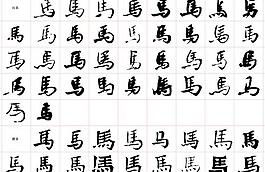 馬 馬 馬 馬 馬 馬 馬 馬
馬 馬 馬 馬 馬 馬 馬 馬 馬
馬 馬 馬 馬 馬 馬 馬 馬 馬
馬 馬 馬 馬 馬 馬 馬 馬 馬
馬 馬
馬 馬 馬 馬 馬 馬 馬 馬
馬 馬 馬 馬 馬 馬 馬 馬 馬